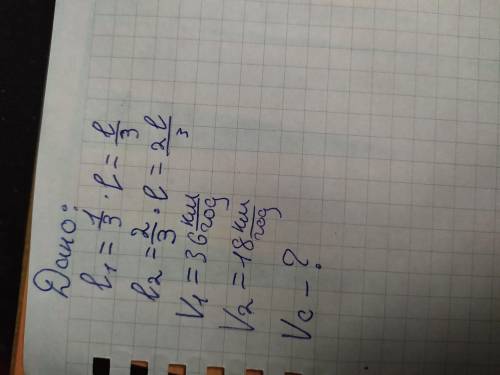 Дано:
l₁ = 1/3 · l = l/3
l₂ = 2/3 · l = 2l/3
V₁ = 36 км/год
V₂ = 18 км/год
Vc - ?